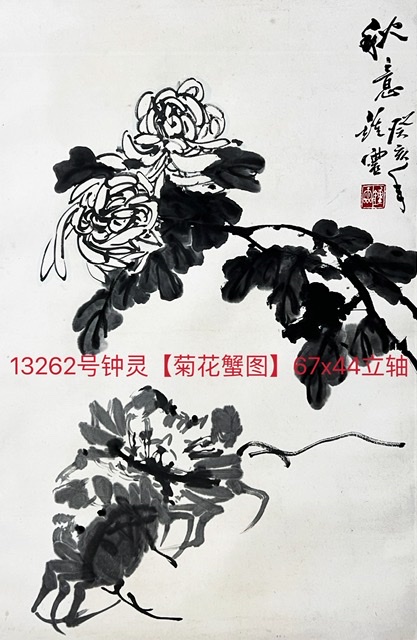 秋意
癸亥年
鍾靈
13262号钟灵【菊花蟹图】67x44立轴